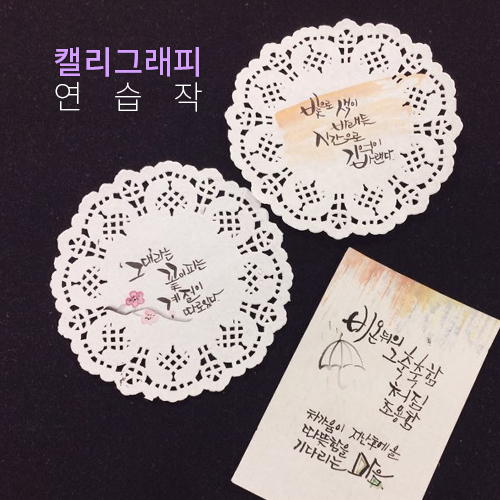 캘리그래피
연 습 작
빛으로 색이
바래듯
시간으로
기억이
바랜다
그대라는
꽃이피는
계절이
따로있다
비온뒤의
그축축함
처짐
조용함
차가움이 지난후에 올
따뜻함을
기다리는 마음